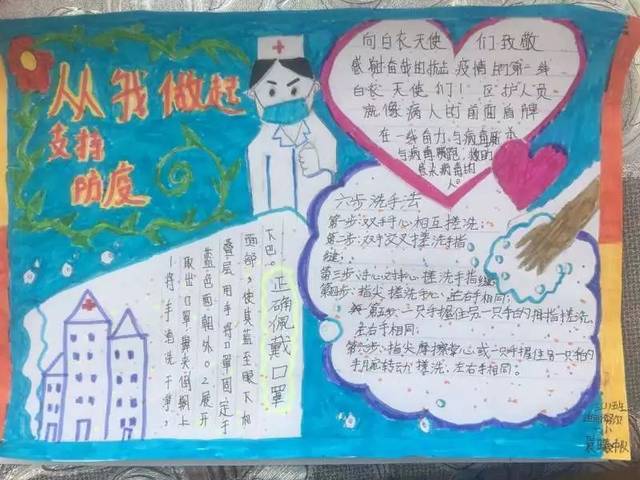 从我做起
支持
防疫
向白衣天使们致敬
感谢奋战的抗击疫情上的第一线
白衣天使们！医护人员
就像病人的前面盾牌
在一线奋力与病毒
与病毒赛跑,
人。
六步洗手法
第一步:双手手心相互搓洗;
第二步:双手交叉搓洗手指
缝;
第三步:手心对手心搓洗手指缝
第四步:指尖搓洗手心,左右相同;
第五步:一只手握住另一只手的拇指搓洗,
左右手相同。
第六步:指尖摩擦掌心或一只手握住另一只手的
手腕转动搓洗,左右手相同。
正确佩戴口罩
1将手清洗干净,
取出口罩鼻夹侧朝上
蓝色面朝外。2展开
叠层用手将口罩固定于
面部,使其盖至眼下和
下巴